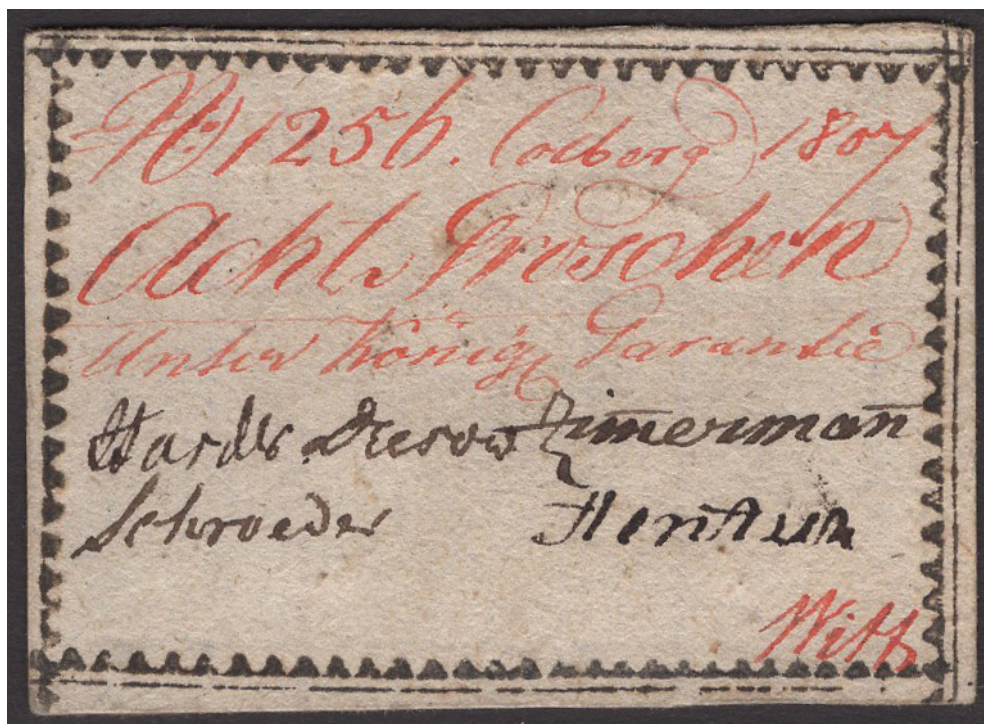 No) 1256. Colberg 1807
Acht Groschen
Unter Königl Garantie
Harder Dresow Zimmermann
Schroeder Hentsch
Witt